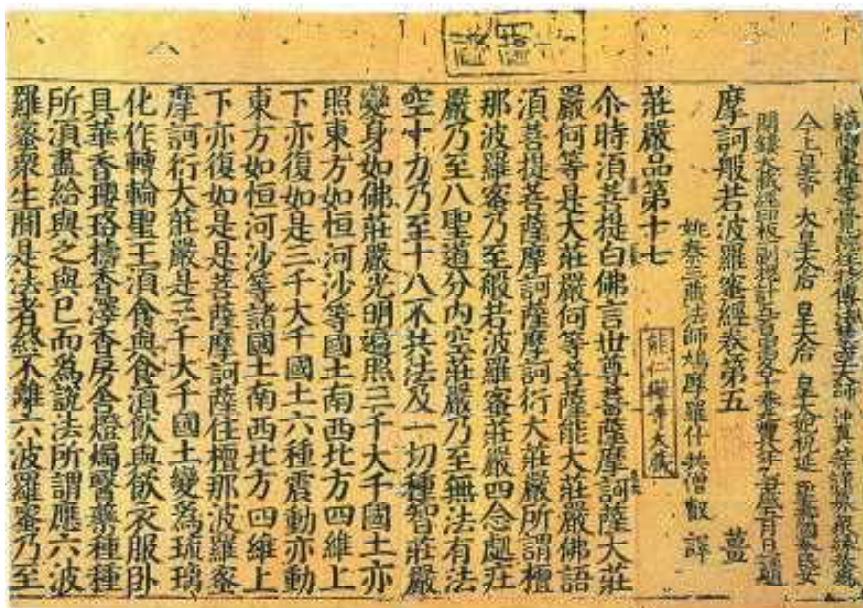 等覺院住持傳法慧空大師 沖真
今上皇帝 太皇太后 皇太后 皇太妃祝延 聖壽國泰民安
開鏤大藏經印板一副總計五百
摩訶般若波羅蜜經卷第五 薑
姚秦三藏法師鳩摩羅什共僧叡 譯
莊嚴品第十七
能仁禪寺大藏
尒時須菩提白佛言世尊菩薩摩訶薩大莊
嚴何等是大莊嚴何等菩薩能大莊嚴佛語
須菩提菩薩摩訶薩摩訶衍大莊嚴所謂檀
那波羅蜜乃至般若波羅蜜莊嚴四念處莊
嚴乃至八聖道分内空莊嚴乃至無法有法
空十力乃至十八不共法及一切種智莊嚴
變身如佛莊嚴光明遍照三千大千國土亦
照東方如恒河沙等國土南西北方四維上
下亦復如是三千大千國土六種震動亦動
東方如恒河沙等諸國土南西北方四維上
下亦復如是是菩薩摩訶薩住檀那波羅蜜
摩訶衍大莊嚴是三千大千國土變爲琉璃
化作轉輪聖王須食與食須飲與飲衣服卧
具華香瓔珞擣香澤香房舍燈燭醫藥種種
所須盡給與之與已而爲說法所謂應六波
羅蜜衆生聞是法者終不離六波羅蜜乃至